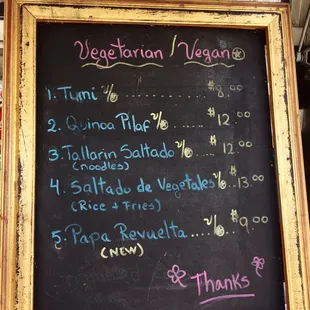 Vegetarian / Vegan
1. Tumi v/o $8.00
2. Quinoa Pilaf v/o ..... $12.00
3. Tallarin Saltado v/o .... $12.00
(noodles)
4. Saltado de Vegetales v/o .. $13.00
(Rice + Fries)
5. Papa Revuelta .... v/o .. $9.00
(NEW)
Thanks